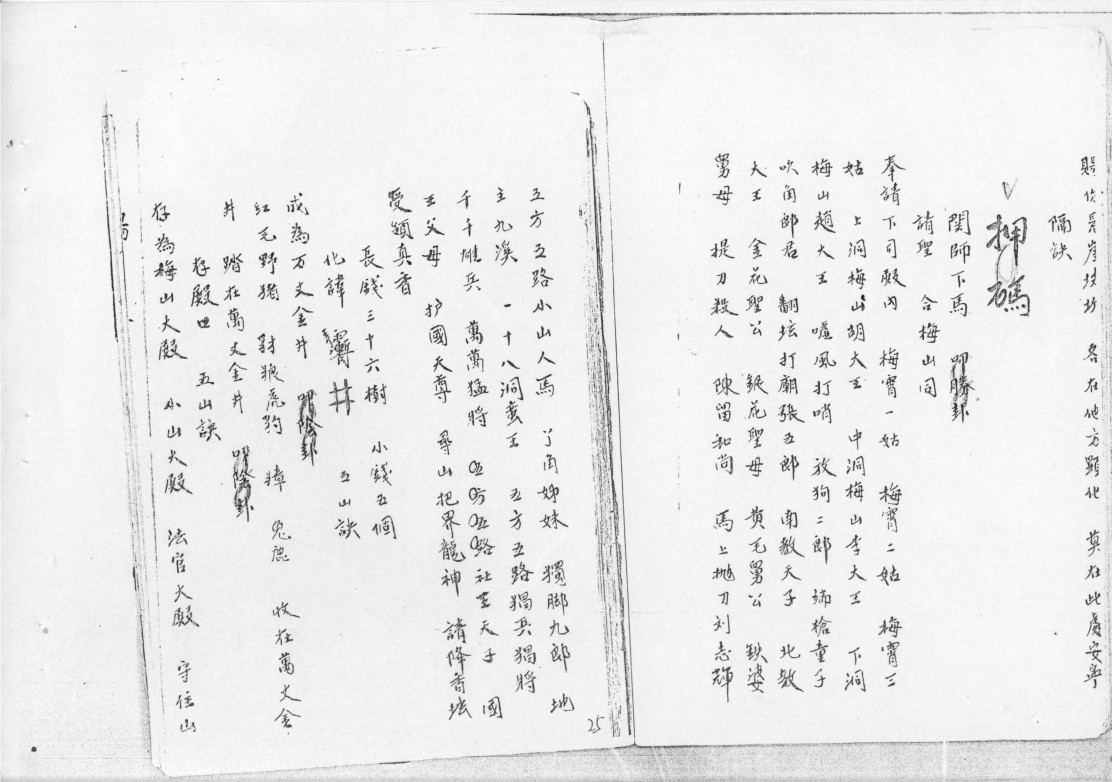 各在他方顯化 莫在此處安寧
隔訣
押碼
閭師下馬 叩勝卦
請聖 合梅山同
奉請下司殿內 梅霄一姑 梅霄二姑 梅霄三
姑 上洞梅山胡大王 中洞梅山李大王 下洞
梅山趙大王 嘘風打哨 放狗二郎 端槍童子
吹角郎君 翻坛打廟張五郎 南教天子 北教
大王 金花聖公 銀花聖母 黄毛舅公 鉄婆
舅母 提刀殺人 陳留和尚 馬上抛刀刘志輝
五方五路小山人馬 丫角姊妹 獨脚九郎 地
主九溪 一十八洞蛮王 五方五路猖兵猖將
千千雄兵 萬萬猛將 五方五路社王天子 國
王父母 护國天尊 尋山把界龍神 請降香坛
受領真香
長錢三十六樹 小錢五個
化諱 井 五山訣
成為万丈金井 叩陰卦
紅毛野猪 豺狼虎豹 獐 兔鹿 收在萬丈金
井 踏在萬丈金井 叩陰卦
存殿四 五山訣
存為梅山大殿 小山大殿 法官大殿 守住山
25